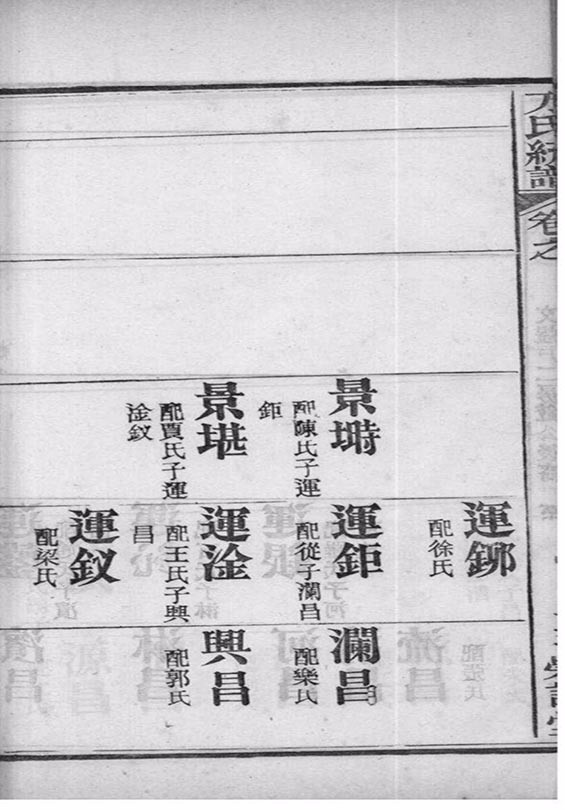 氏統譜
卷之
景塒
配陳氏子運
鉅
景堪
配賈氏子運
淦釵
運鉚
配徐氏
運鉅
配從子瀾昌
運淦
配王氏子興
昌
運釵
配梁氏
瀾昌
配樂氏
興昌
配郭氏